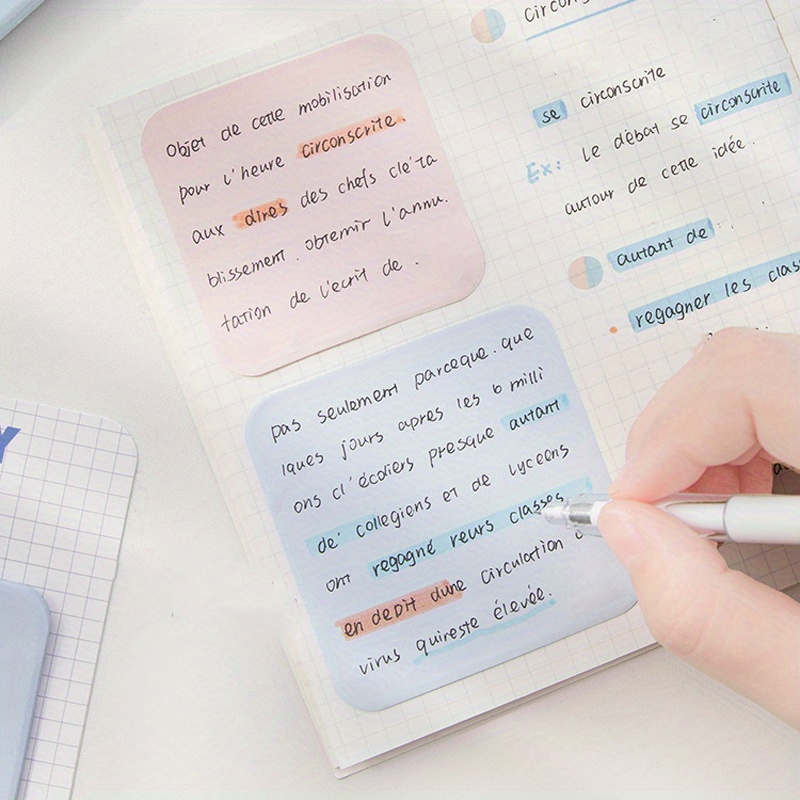 objet de cette mobilisation
pour l'heure circonscrite.
aux dires des chefs cle'ta
blissement. obtemir l'annu.
tation de l'ecrit de .
pas seulement parceque. que
lques jours apres les 6 milli
ons cl'écoliers presque autant
de' collegiens et de lyceens
ont regagné reurs classes
en depit dune circulation
virus quireste élevée.
se circonscrite
Ex: le débat se circonscrite
autour de cette idée.
autant de
regagner les class